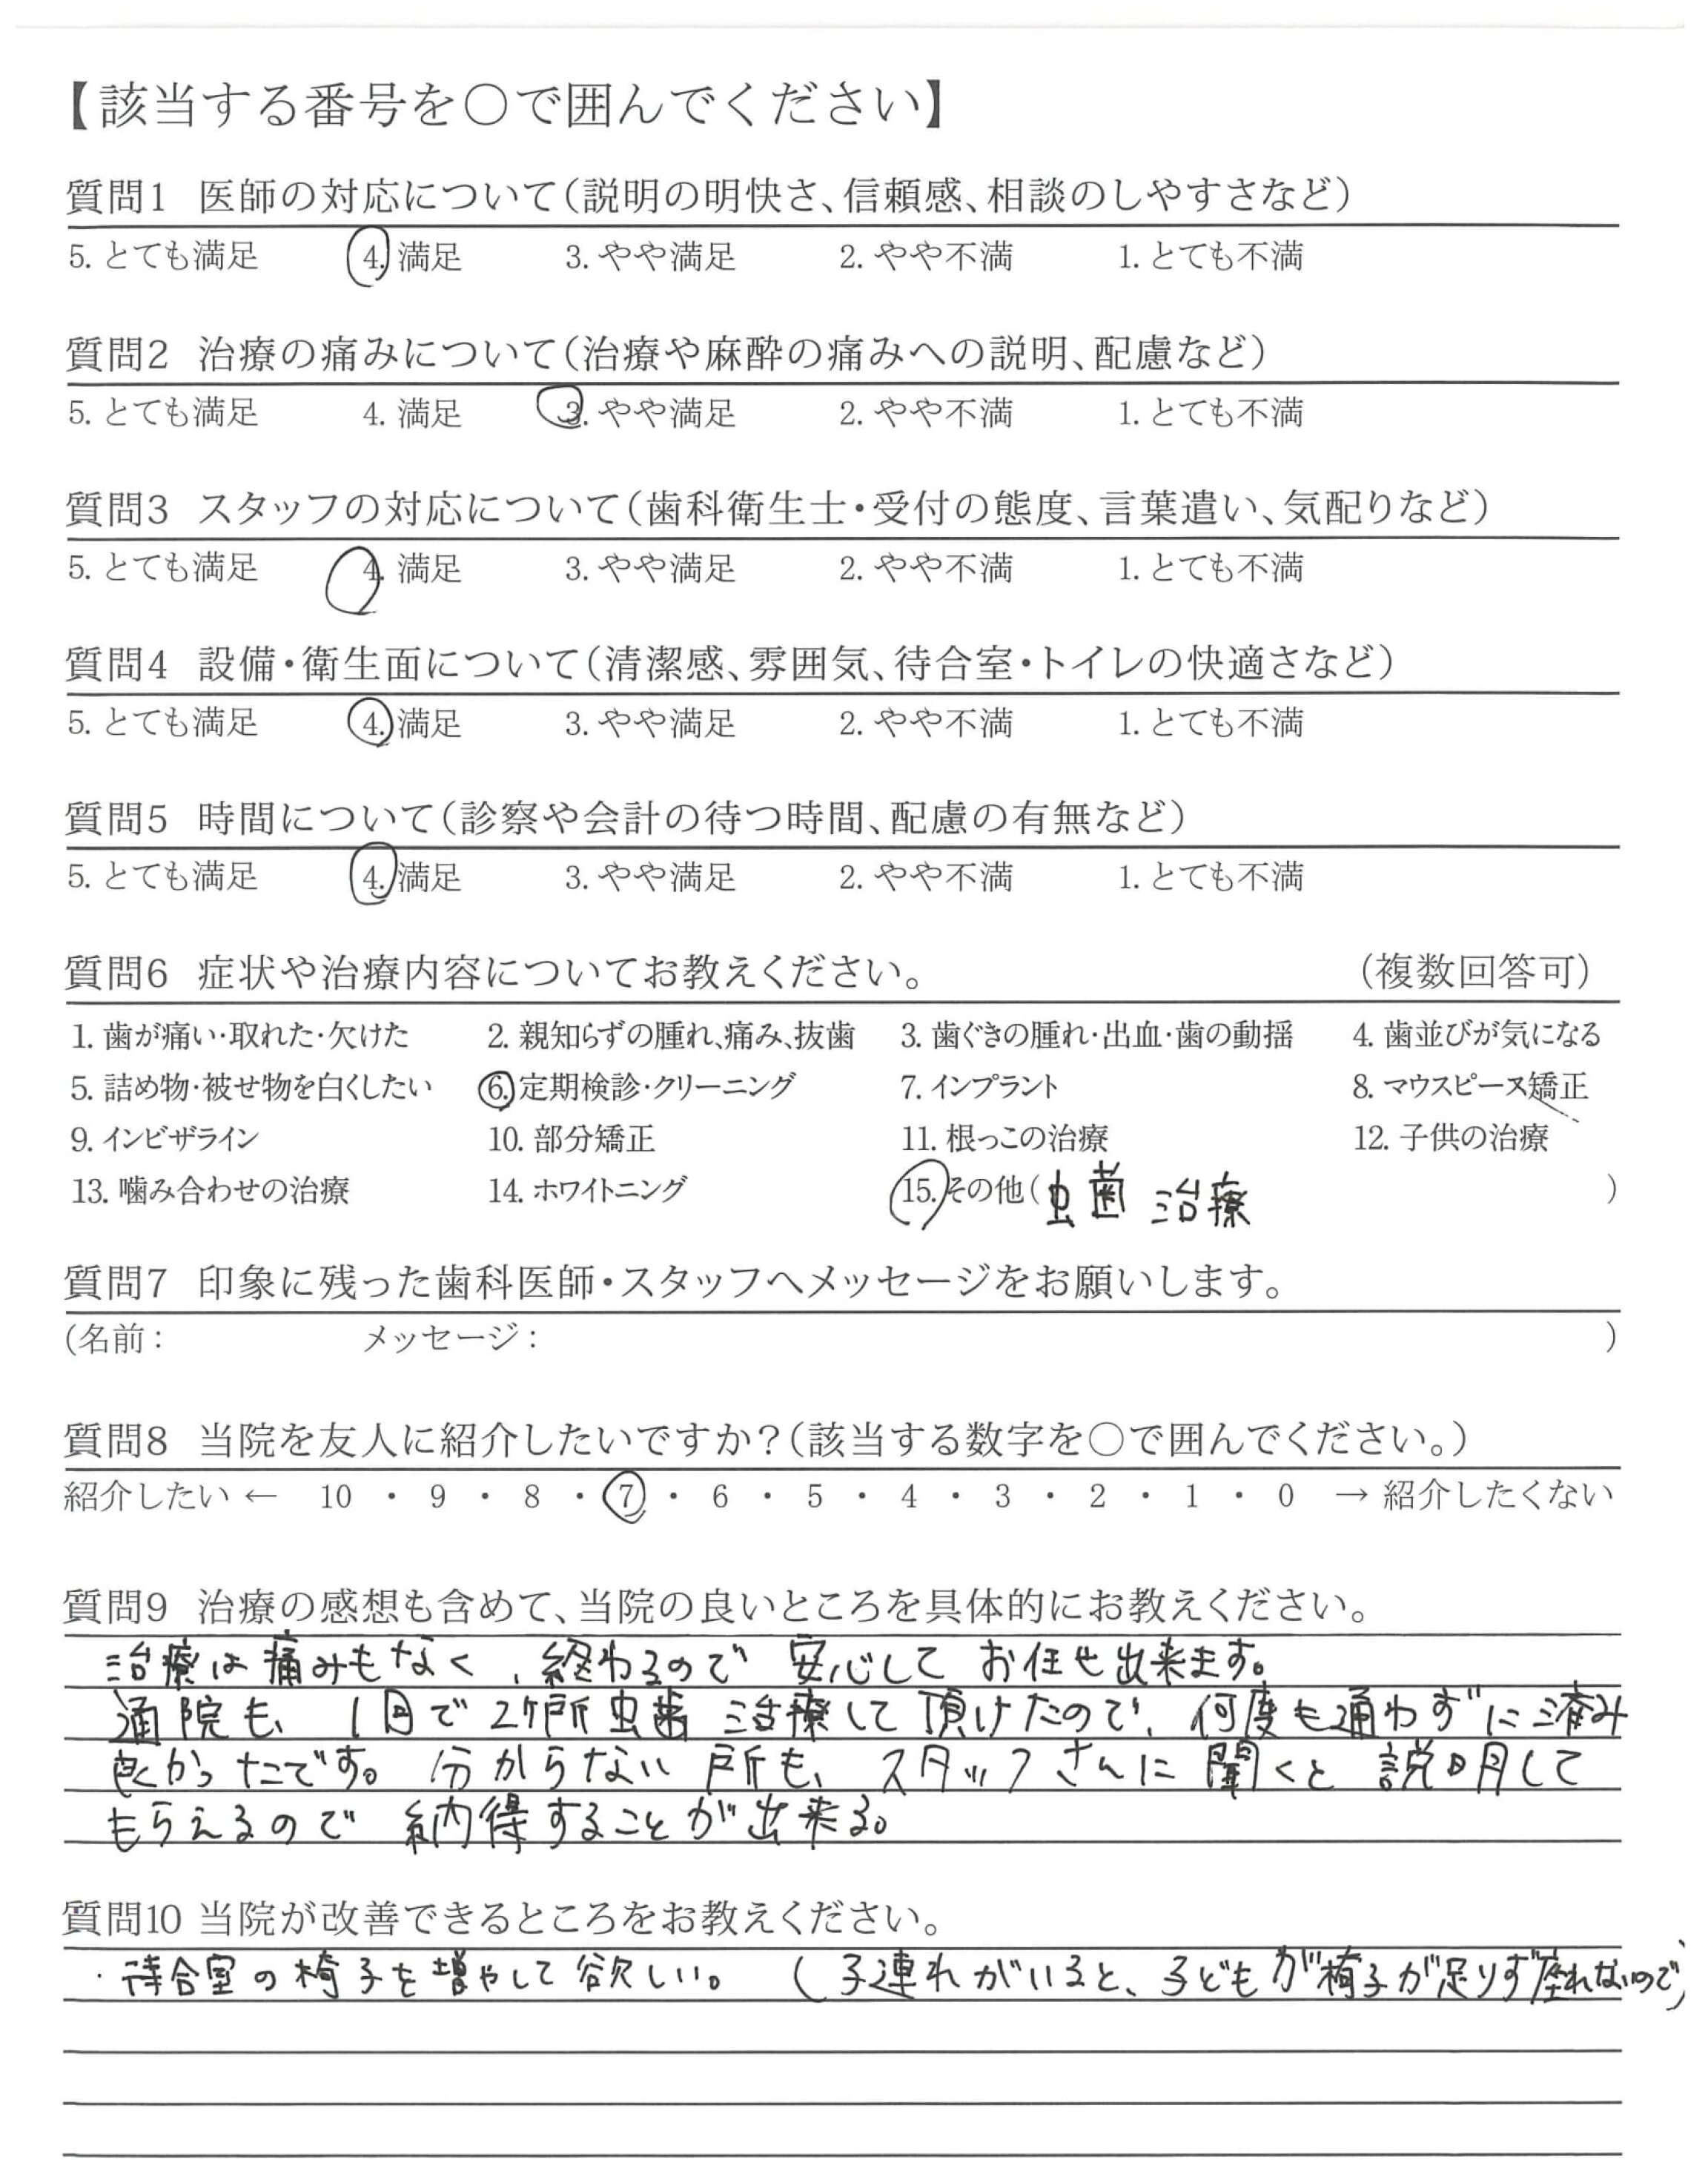 【該当する番号を〇で囲んでください】
質問1 医師の対応について(説明の明快さ、信頼感、相談のしやすさなど)
5. とても満足 4. 満足 3. やや満足 2. やや不満 1. とても不満
質問2 治療の痛みについて(治療や麻酔の痛みへの説明、配慮など)
5. とても満足 4. 満足 3. やや満足 2. やや不満 1. とても不満
質問3 スタッフの対応について(歯科衛生士・受付の態度、言葉遣い、気配りなど)
5. とても満足 4. 満足 3. やや満足 2. やや不満 1. とても不満
質問4 設備・衛生面について(清潔感、雰囲気、待合室・トイレの快適さなど)
5. とても満足 4. 満足 3. やや満足 2. やや不満 1. とても不満
質問5 時間について(診察や会計の待つ時間、配慮の有無など)
5. とても満足 4. 満足 3. やや満足 2. やや不満 1. とても不満
質問6 症状や治療内容についてお教えください。 (複数回答可)
1. 歯が痛い・取れた・欠けた 2. 親知らずの腫れ、痛み、抜歯 3. 歯ぐきの腫れ・出血・歯の動揺 4. 歯並びが気になる
5. 詰め物・被せ物を白くしたい 6. 定期検診・クリーニング 7. インプラント 8. マウスピース矯正
9. インビザライン 10. 部分矯正 11. 根っこの治療 12. 子供の治療
13. 噛み合わせの治療 14. ホワイトニング 15. その他(虫歯 治療 )
質問7 印象に残った歯科医師・スタッフへメッセージをお願いします。
(名前: メッセージ: )
質問8 当院を友人に紹介したいですか?(該当する数字を〇で囲んでください。)
紹介したい ← 10 ・ 9 ・ 8 ・ 7 ・ 6 ・ 5 ・ 4 ・ 3 ・ 2 ・ 1 ・ 0 → 紹介したくない
質問9 治療の感想も含めて、当院の良いところを具体的にお教えください。
治療は痛みもなく、終わるので 安心して お任せ出来ます。
通院も、1日で2ヶ所虫歯 治療して頂けたので、何度も通わずに済み
良かったです。分からない所も、スタッフさんに聞くと説明して
もらえるので 納得することが出来る。
質問10 当院が改善できるところをお教えください。
・待合室の椅子を増やして欲しい。 (子連れがいると、子どもが椅子が足りず座れないので)